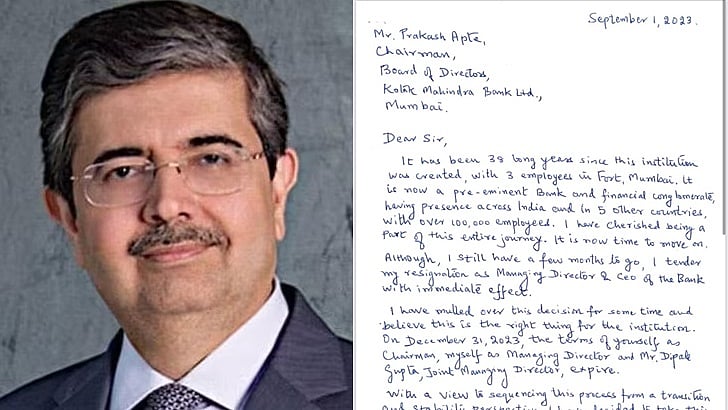 September 1, 2023.
Mr. Prakash Apte,
Chairman,
Board of Directors,
Kotak Mahindra Bank Ltd.,
Mumbai.
Dear Sir,
It has been 38 long years since this institution
was created, with 3 employees in Fort, Mumbai. It
is now a pre-eminent Bank and financial conglomerate,
having presence across India and in 5 other countries,
with over 100,000 employees. I have cherished being a
part of this entire journey. It is now time to move on.
Although, I still have a few months to go, I tender
my resignation as Managing Director & CEO of the Bank
with immediate effect.
I have mulled over this decision for some time and
believe this is the right thing for the institution.
On December 31, 2023, the terms of yourself as
Chairman, myself as Managing Director and Mr. Dipak
Gupta, Joint Managing Director, expire.
With a view to sequencing this process from a transition
and stability perspective, I have decided to take this